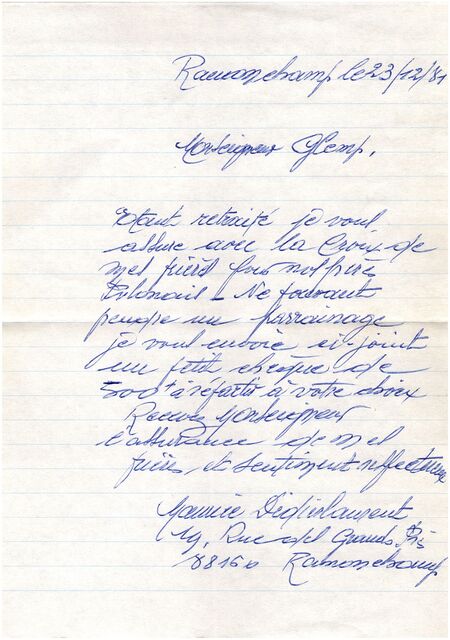 Ramonchamp le 23/12/81
Monseigneur Glemp,
Etant retraité je vous
assure avec la Croix de
mes prières pour nos frères
Polonais - Ne pouvant
prendre un parrainage
je vous envoie ci-joint
un petit chèque de
500 à répartir à votre choix
Recevez Monseigneur
l'assurance de mes
prières, et sentiments respectueux
Maurice Didierlaurent
Rue des Grands Prés
88160 Ramonchamp